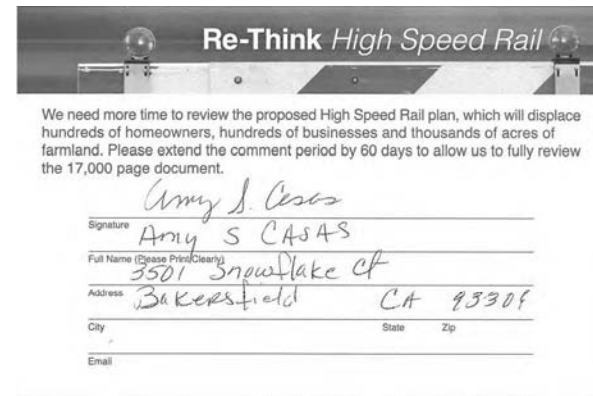 Re-Think High Speed Rail
We need more time to review the proposed High Speed Rail plan, which will displace
hundreds of homeowners, hundreds of businesses and thousands of acres of
farmland. Please extend the comment period by 60 days to allow us to fully review
the 17,000 page document.
Amy S. Casas
Signature
Amy S CASAS
Full Name (Please Print Clearly)
3501 Snowflake Ct
Address
Bakersfield CA 93309
City State Zip
Email